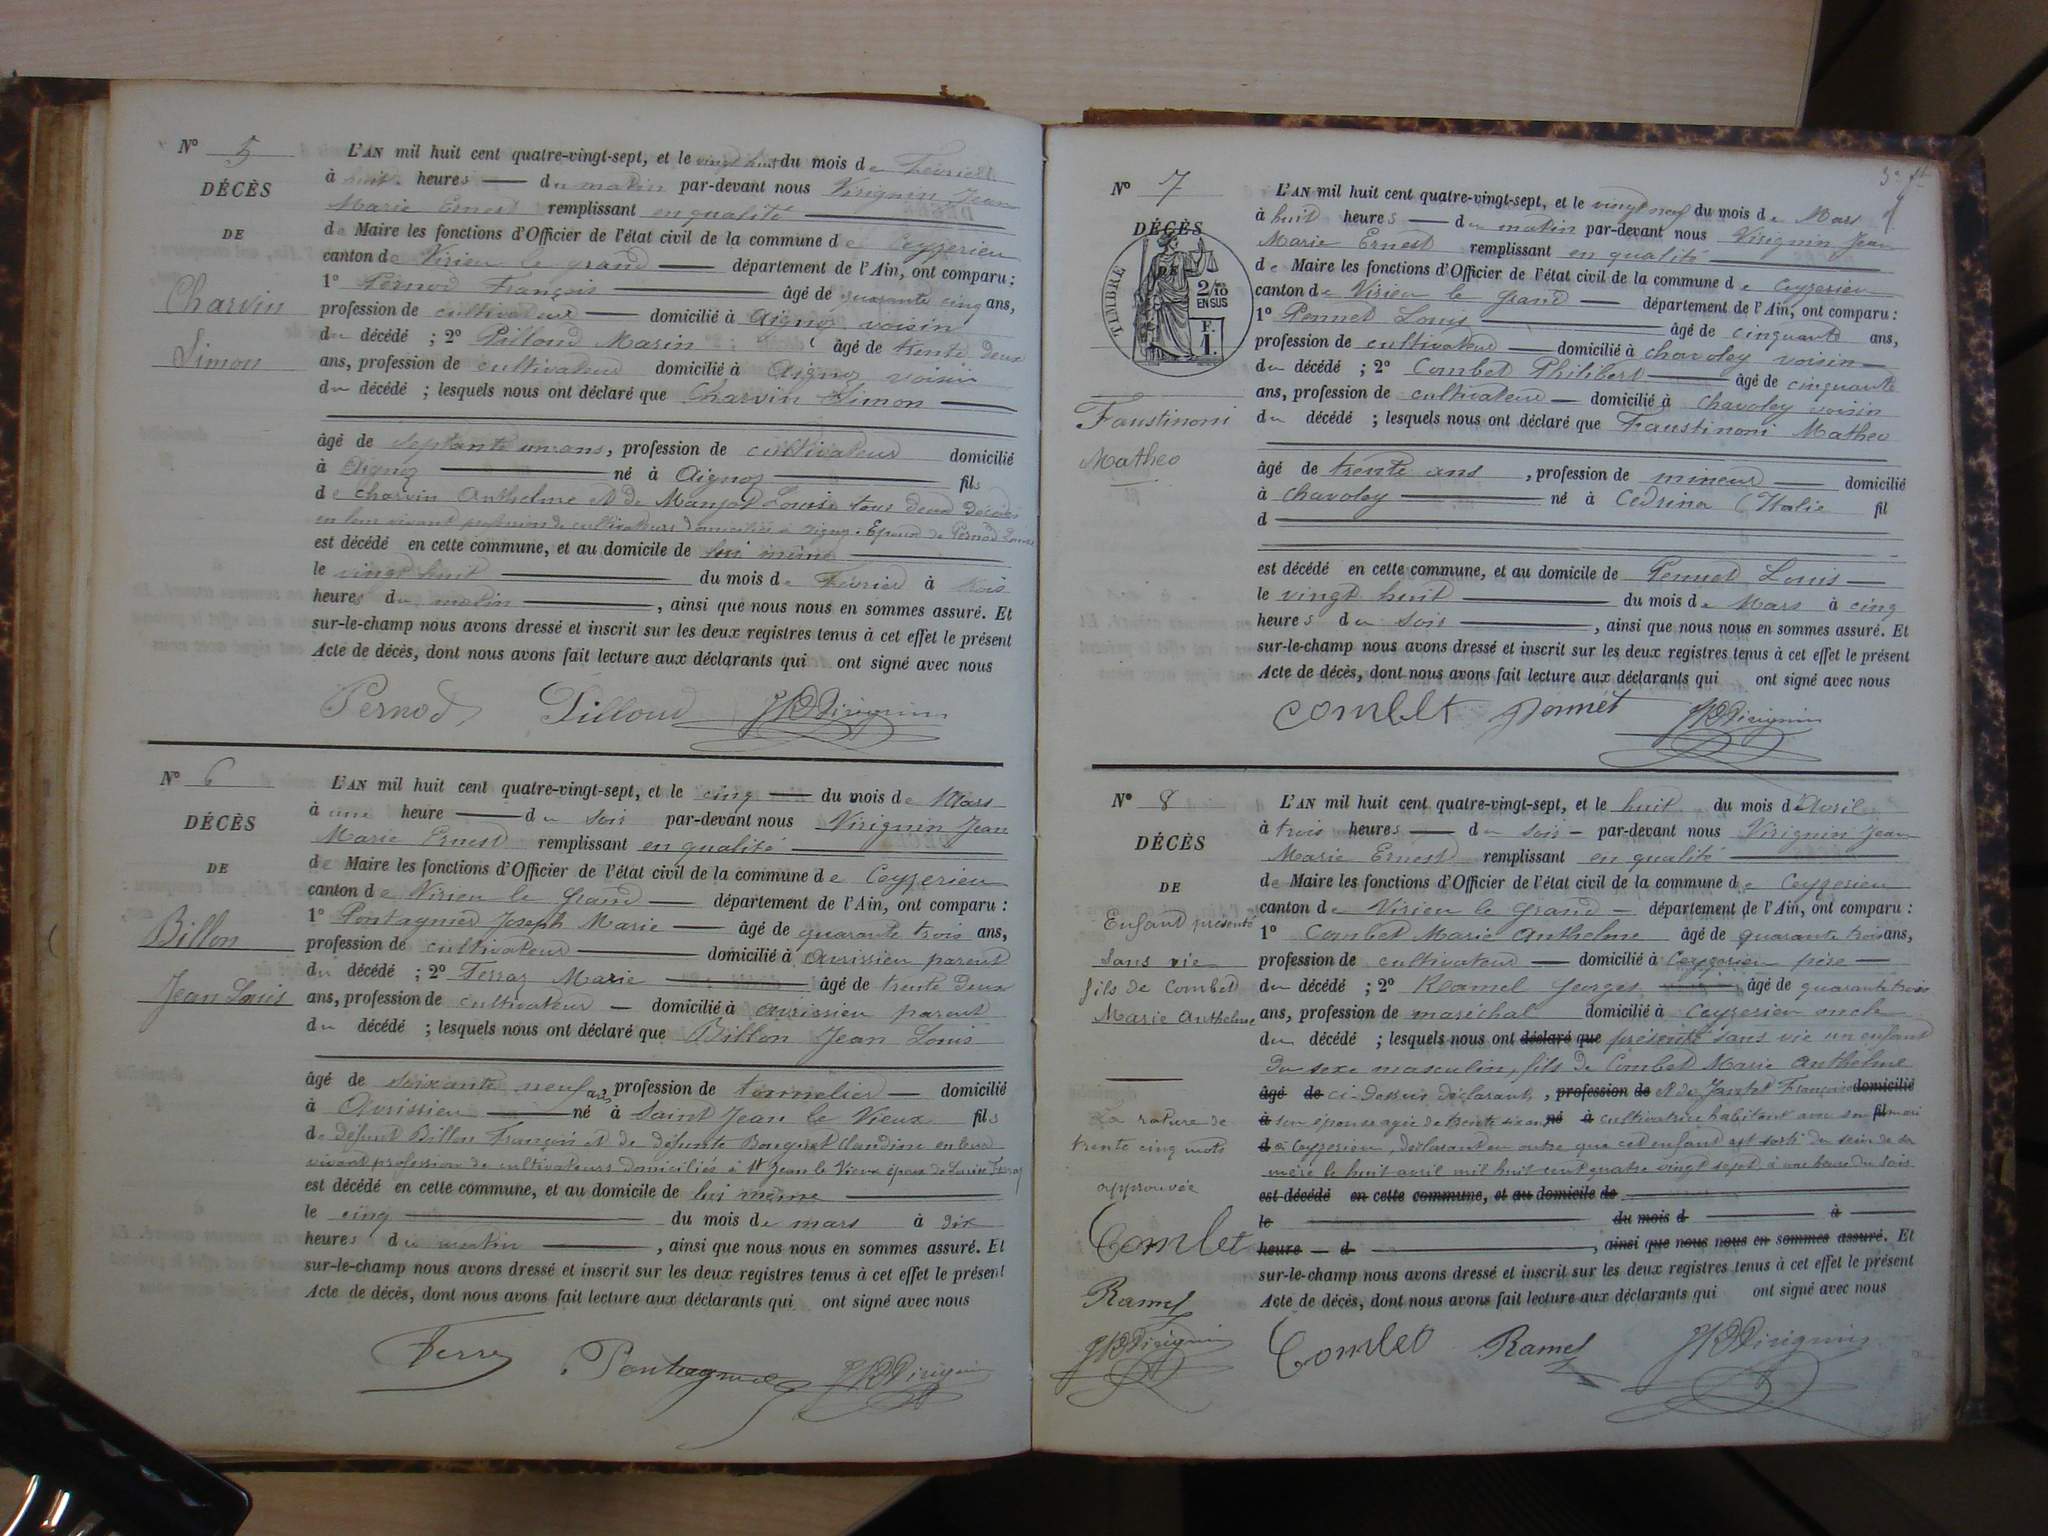 N° 5
DÉCÈS
DE
Charvin
Simon
L'AN mil huit cent quatre-vingt-sept, et le vingt huit du mois de Février
à huit heures du matin par-devant nous Virignin Jean
Marie Ernest remplissant en qualité
de Maire les fonctions d'Officier de l'état civil de la commune de Ceyzerieu
canton de Virieu le grand département de l'Ain, ont comparu :
1° Pernod François âgé de quarante cinq ans,
profession de cultivateur domicilié à Aignoz voisin
du décédé ; 2° Pilloud Marin âgé de trente deux
ans, profession de cultivateur domicilié à Aignoz voisin
du décédé ; lesquels nous ont déclaré que Charvin Simon
âgé de septante un ans, profession de cultivateur domicilié
à Aignoz né à Aignoz fils
de Charvin Anthelme et de Manjot Louise tous deux décédés
en leur vivant profession de cultivateurs domiciliés à Aignoz. Epoux de Pernod Louise
est décédé en cette commune, et au domicile de lui même
le vingt huit du mois de Février à trois
heures du matin, ainsi que nous nous en sommes assuré. Et
sur-le-champ nous avons dressé et inscrit sur les deux registres tenus à cet effet le présent
Acte de décès, dont nous avons fait lecture aux déclarants qui ont signé avec nous
Pernod Pilloud Virignin
N° 6
DÉCÈS
DE
Billon
Jean Louis
L'AN mil huit cent quatre-vingt-sept, et le cinq du mois de Mars
à une heure du soir par-devant nous Virignin Jean
Marie Ernest remplissant en qualité
de Maire les fonctions d'Officier de l'état civil de la commune de Ceyzerieu
canton de Virieu le grand département de l'Ain, ont comparu :
1° Pontagnier Joseph Marie âgé de quarante trois ans,
profession de cultivateur domicilié à Avrissieu parent
du décédé ; 2° Ferraz Marie âgé de trente deux
ans, profession de cultivateur domicilié à Avrissieu parent
du décédé ; lesquels nous ont déclaré que Billon Jean Louis
âgé de soixante neuf ans, profession de tonnelier domicilié
à Avrissieu né à Saint Jean le Vieux fils
de défunt Billon François et de défunte Bouquet Claudine en leur
vivant profession de cultivateurs domiciliés à St Jean le Vieux époux de Louise Ferraz
est décédé en cette commune, et au domicile de lui même
le cinq du mois de mars à dix
heures du matin, ainsi que nous nous en sommes assuré. Et
sur-le-champ nous avons dressé et inscrit sur les deux registres tenus à cet effet le présent
Acte de décès, dont nous avons fait lecture aux déclarants qui ont signé avec nous
Pontagnier Virignin
N° 7
DÉCÈS
DE
TIMBRE
2/10
EN SUS
F.
1.
Faustinoni
Matheo
L'AN mil huit cent quatre-vingt-sept, et le vingt neuf du mois de Mars
à huit heures du matin par-devant nous Virignin Jean
Marie Ernest remplissant en qualité
de Maire les fonctions d'Officier de l'état civil de la commune de Ceyzerieu
canton de Virieu le grand département de l'Ain, ont comparu :
1° Pennet Louis âgé de cinquante ans,
profession de cultivateur domicilié à Chavoley voisin
du décédé ; 2° Combet Philibert âgé de cinquante
ans, profession de cultivateur domicilié à Chavoley voisin
du décédé ; lesquels nous ont déclaré que Faustinoni Matheo
âgé de trente ans, profession de mineur domicilié
à Chavoley né à Cedrina (Italie fil
d
est décédé en cette commune, et au domicile de Pennet Louis
le vingt huit du mois de Mars à cinq
heures du soir, ainsi que nous nous en sommes assuré. Et
sur-le-champ nous avons dressé et inscrit sur les deux registres tenus à cet effet le présent
Acte de décès, dont nous avons fait lecture aux déclarants qui ont signé avec nous
Combet Pennet Virignin
N° 8
DÉCÈS
DE
Enfant présenté
sans vie
fils de Combet
Marie Anthelme
La rature de
trente cinq mots
approuvée
Combet
Ramel
Virignin
L'AN mil huit cent quatre-vingt-sept, et le huit du mois d'Avril
à trois heures du soir par-devant nous Virignin Jean
Marie Ernest remplissant en qualité
de Maire les fonctions d'Officier de l'état civil de la commune de Ceyzerieu
canton de Virieu le grand département de l'Ain, ont comparu :
1° Combet Marie Anthelme âgé de quarante trois ans,
profession de cultivateur domicilié à Ceyzerieu père
du décédé ; 2° Ramel Georges âgé de quarante trois
ans, profession de maréchal domicilié à Ceyzerieu oncle
du décédé ; lesquels nous ont déclaré que présenté sans vie un enfant
du sexe masculin, fils de Combet Marie Anthelme
âgé de ci-dessus déclarant, profession de et de Jantet Françoise domicilié
à son épouse agée de trente six ans né à cultivatrice habitant avec son fil mari
d à Ceyzerieu, déclarant en outre que cet enfant est sorti du sein de sa
mère le huit avril mil huit cent quatre vingt sept à une heure du soir
est décédé en cette commune, et au domicile de
le du mois d à
heure d, ainsi que nous nous en sommes assuré. Et
sur-le-champ nous avons dressé et inscrit sur les deux registres tenus à cet effet le présent
Acte de décès, dont nous avons fait lecture aux déclarants qui ont signé avec nous
Combet Ramel Virignin